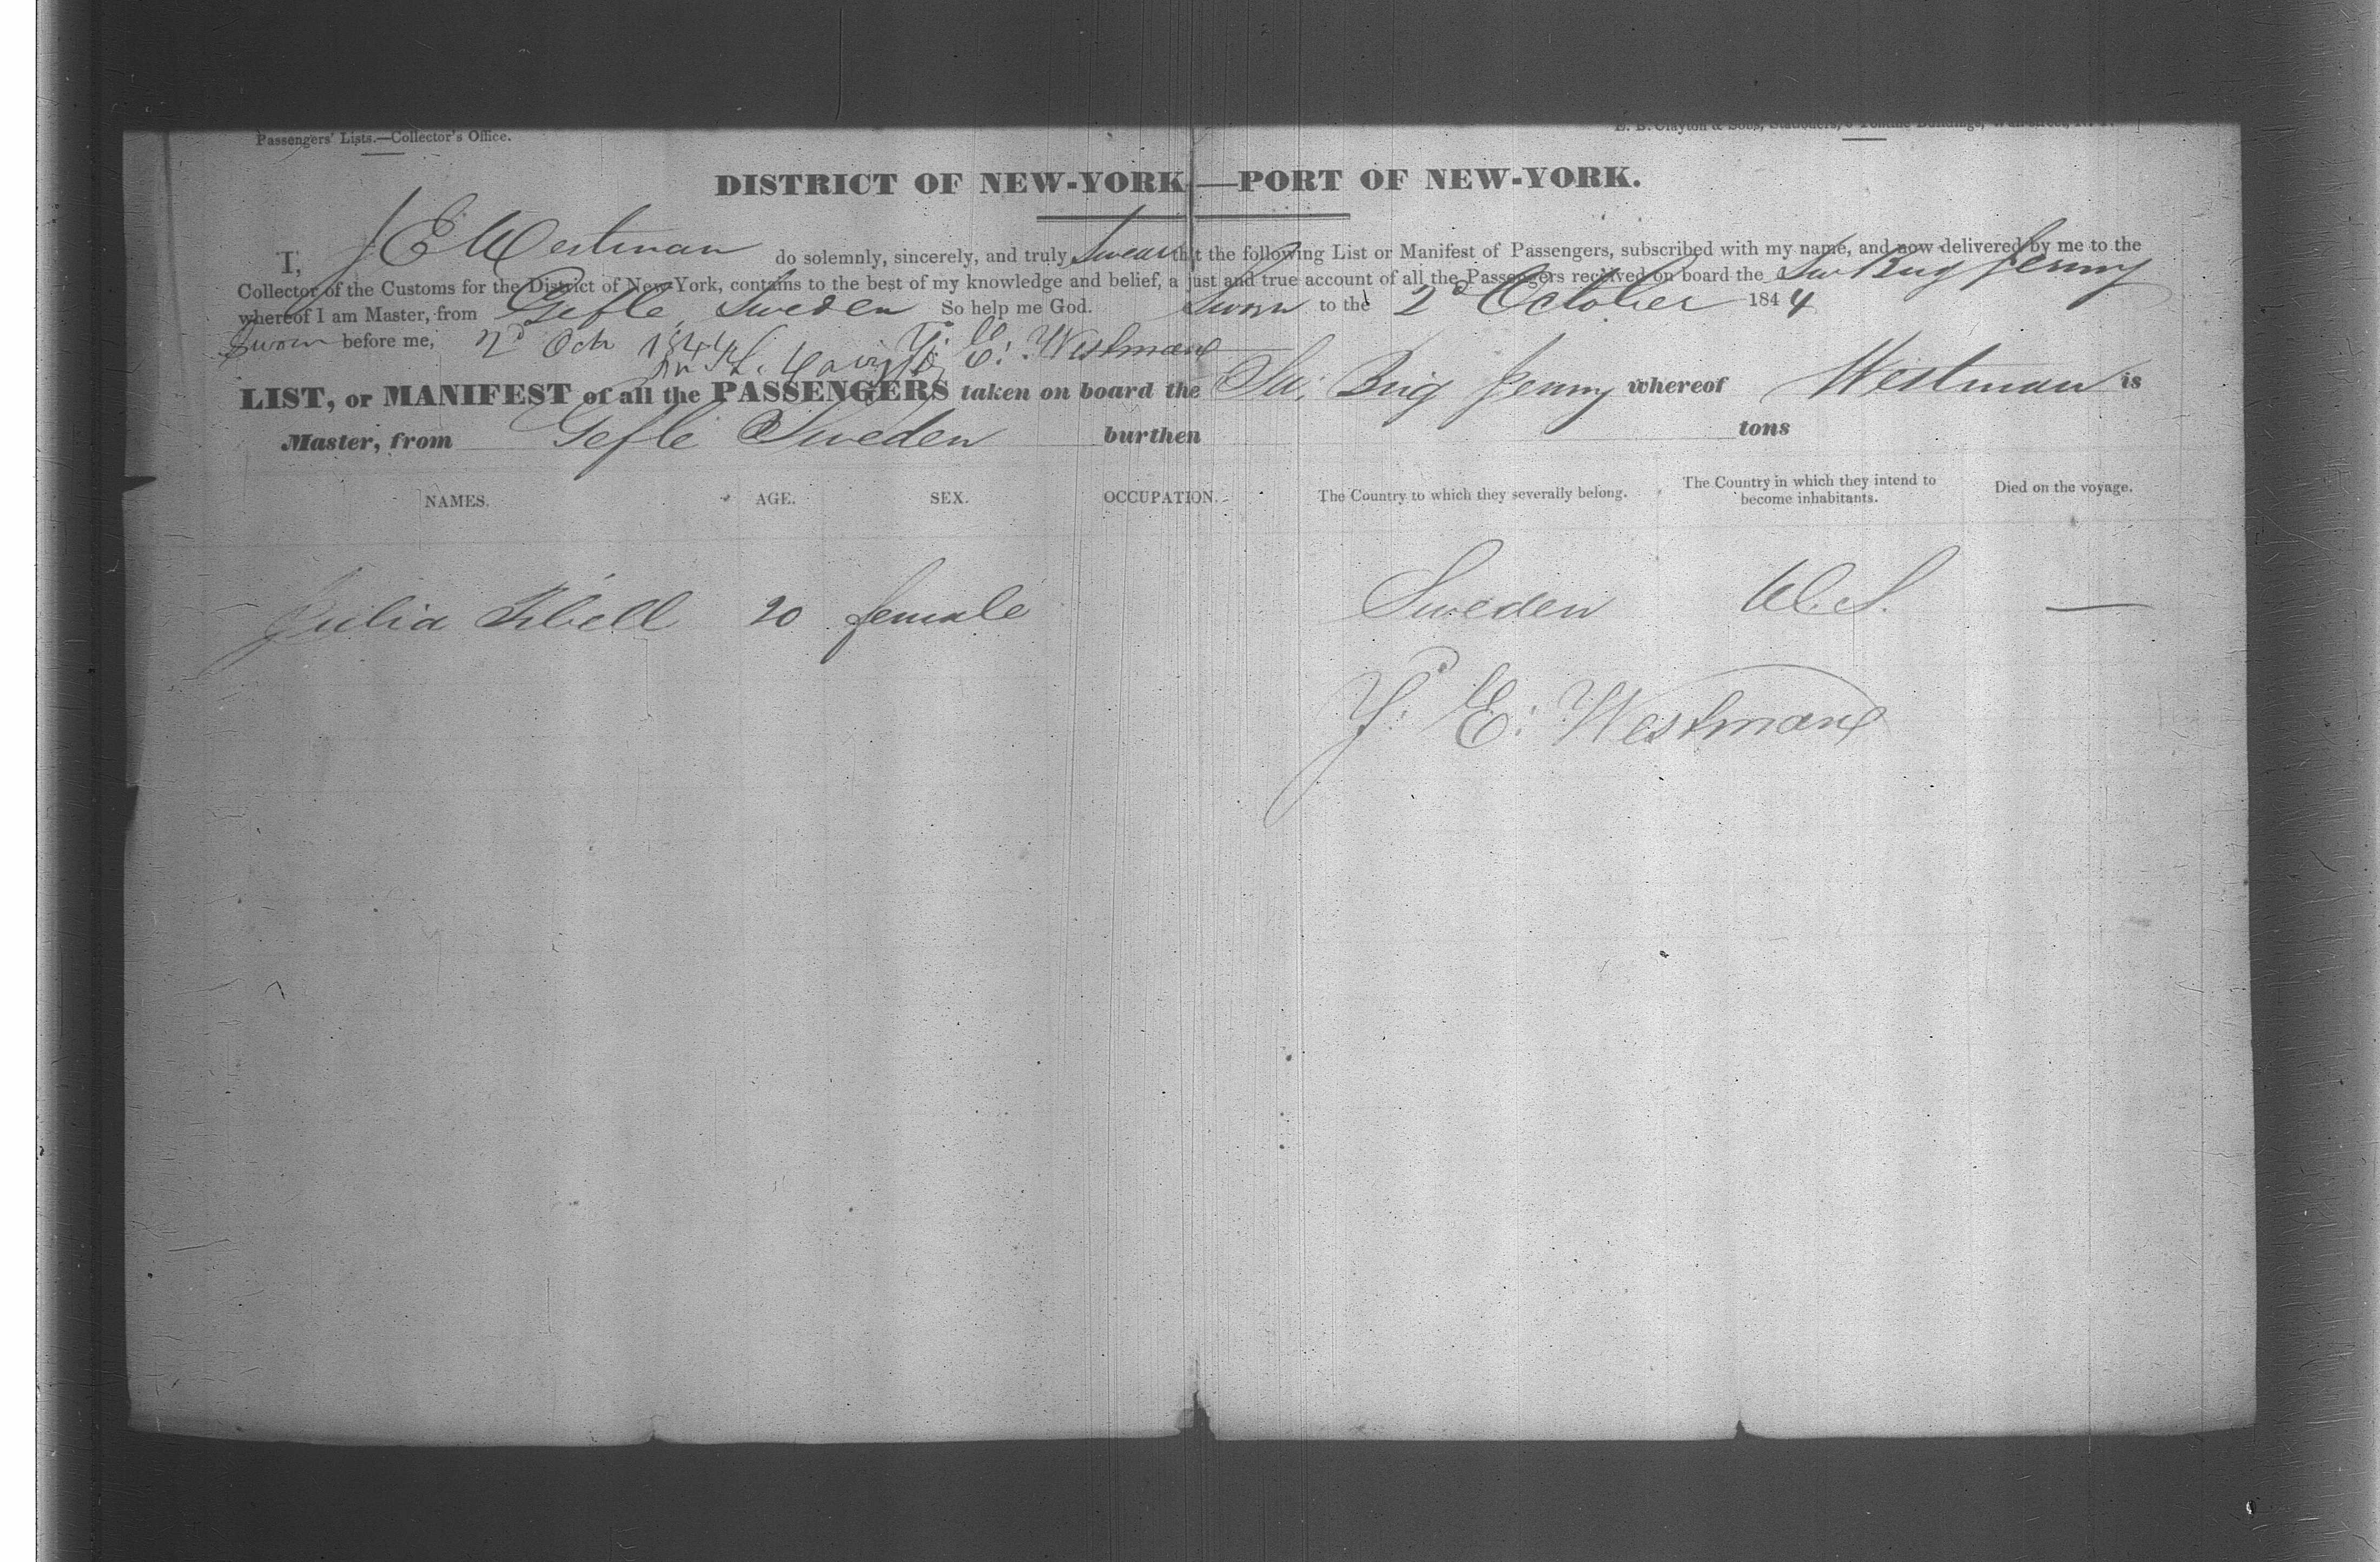 Passengers' Lists.—Collector's Office.
DISTRICT OF NEW-YORK—PORT OF NEW-YORK.
I, J E Westman do solemnly, sincerely, and truly swear that the following List or Manifest of Passengers, subscribed with my name, and now delivered by me to the
Collector of the Customs for the District of New-York, contains to the best of my knowledge and belief, a just and true account of all the Passengers received on board the Sw Brig Jenny
whereof I am Master, from Gefle, Sweden So help me God. Sworn to the 2d October 1844
Sworn before me, 2d Oct 1844 J: E: Westman
LIST, or MANIFEST of all the PASSENGERS taken on board the Sw; Brig Jenny whereof Westman is
Master, from Gefle Sweden burthen tons
NAMES. AGE. SEX. OCCUPATION. The Country to which they severally belong. The Country in which they intend to become inhabitants. Died on the voyage.
Julia 20 female Sweden U.S. —
J: E: Westman